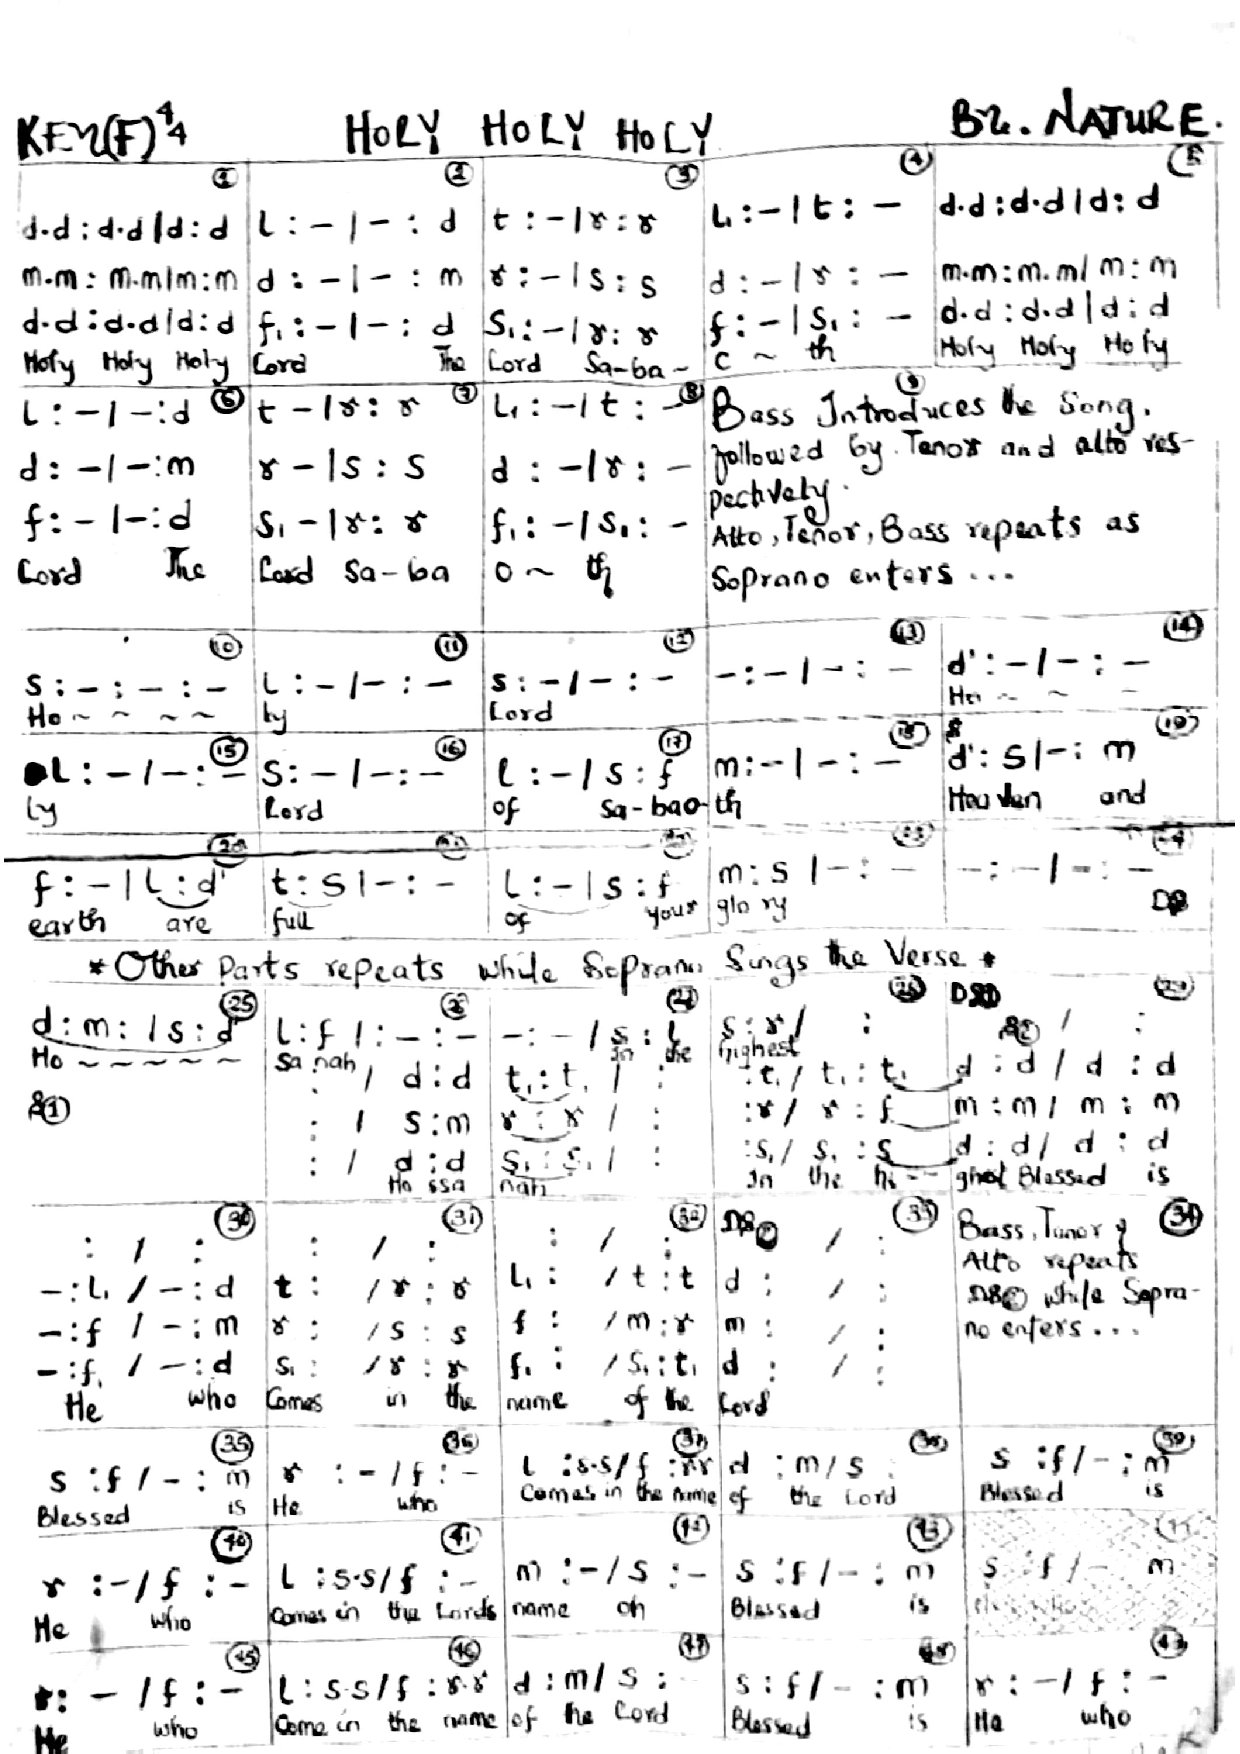 KEY(F) 4/4 HOLY HOLY HOLY By. NATURE.
1 2 3 4 5
d.d : d.d / d : d | l : – / – : d | t : – / r : r | l₁ : – / t : – | d.d : d.d / d : d
m.m : m.m / m : m | d : – / – : m | r : – / s : s | d : – / r : – | m.m : m.m / m : m
d.d : d.d / d : d | f₁ : – / – : d | s₁ : – / r : r | f : – / s₁ : – | d.d : d.d / d : d
Holy Holy Holy | Lord The | Lord Sa-ba- | ~ th | Holy Holy Holy
6 7 8 9
l : – / – : d | t – / r : r | l₁ : – / t : – | Bass Introduces the Song,
d : – / – : m | r – / s : s | d : – / r : – | followed by Tenor and alto res-
f : – / – : d | s₁ – / r : r | f₁ : – / s₁ : – | pectively.
Lord The | Lord Sa-ba | o ~ th | Alto, Tenor, Bass repeats as
Soprano enters ...
10 11 12 13 14
s : – : – : – | l : – / – : – | s : – / – : – | – : – / – : – | d' : – / – : –
Ho ~ ~ ~ ~ | ly | Lord | Ho ~ ~ –
15 16 17 18 19
l : – / – : – | s : – / – : – | l : – / s : f | m : – / – : – | d' : s / – : m
ly | Lord | of Sa-bao- | th | Heaven and
20 21 22 23 24
f : – / l : d' | t : s / – : – | l : – / s : f | m : s / – : – | – : – / – : –
earth are | full | of your | glory | DS
* Other Parts repeats while Soprano Sings the Verse *
25 26 27 28 DS1 29
d : m : / s : d' | l : f / : – : – | – : – / s : l | s : r / : | S2 / :
Ho ~ ~ ~ ~ ~ | sa nah | In the | highest
: / d : d | t₁ : t₁ / : | : t₁ / t₁ : t₁ | d : d / d : d
S1 | : / s : m | r : r / : | : r / r : f | m : m / m : m
: / d : d | s₁ : s₁ / : | : s₁ / s₁ : s | d : d / d : d
Ho ssa | nah | In the hi -- | ghest Blessed is
30 31 32 33 34
: / : | : / : | : / : | DS2 / : | Bass, Tenor &
– : l₁ / – : d | t : / r : r | l₁ : / t : t | d : / : | Alto repeats
– : f / – : m | r : / s : s | f : / m : r | m : / : | DS2 while Sopra-
– : f₁ / – : d | s₁ : / r : r | f₁ : / s₁ : t₁ | d : / : | no enters ...
He who | Comes in the | name of the | Lord
35 36 37 38 39
s : f / – : m | r : – / f : – | l : s.s / f : r.r | d : m / s : | s : f / – : m
Blessed is | He who | Comes in the name | of the Lord | Blessed is
40 41 42 43
r : – / f : – | l : s.s / f : – | m : – / s : – | s : f / – : m | s : f / – m
He who | Comes in the Lords | name oh | Blessed is
45 46 47 48 49
r : – / f : – | l : s.s / f : r.r | d : m / s : – | s : f / – : m | r : – / f : –
He who | Come in the name | of the Lord | Blessed is | He who